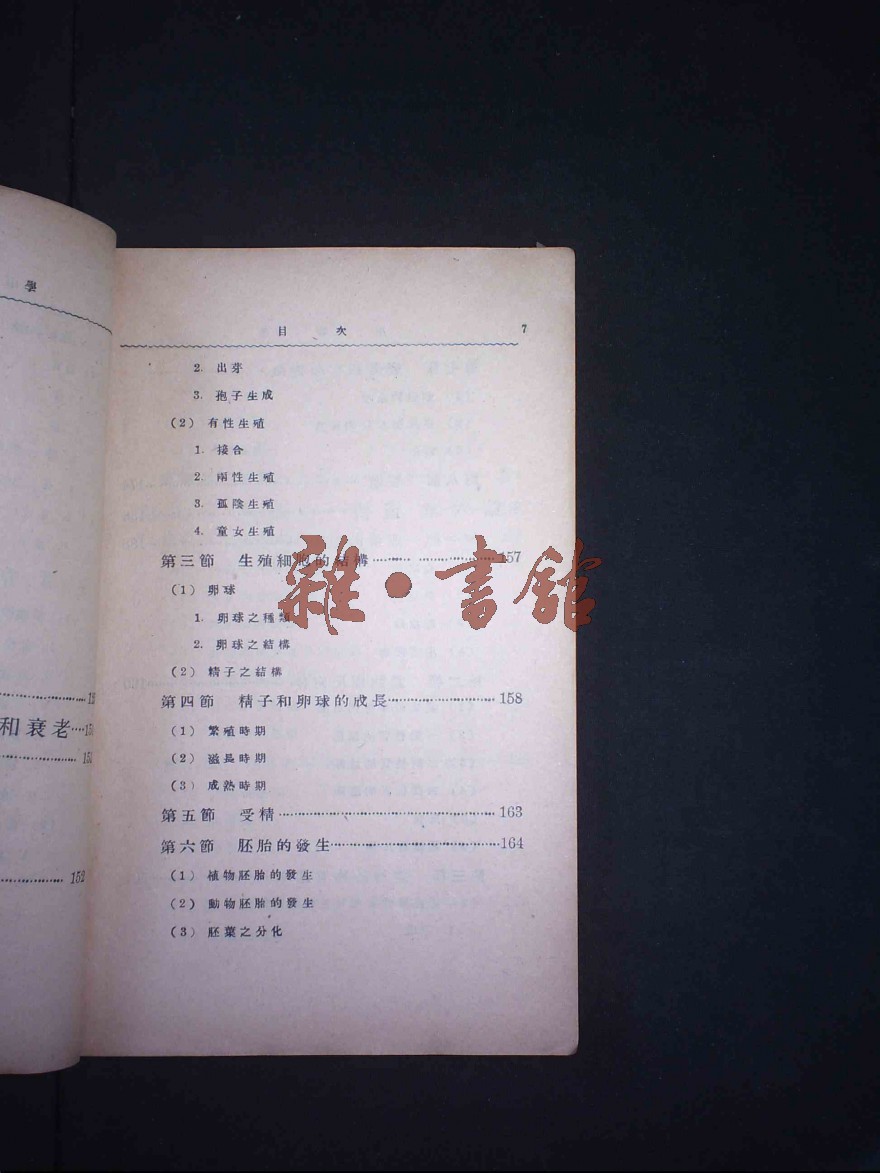 學
和衰老
152
目 次 7
2. 出芽
3. 孢子生成
(2) 有性生殖
1. 接合
2. 兩性生殖
3. 孤陰生殖
4. 童女生殖
第三節 生殖細胞的結構……………………157
(1) 卵球
1. 卵球之種類
2. 卵球之結構
(2) 精子之結構
第四節 精子和卵球的成長……………………158
(1) 繁殖時期
(2) 滋長時期
(3) 成熟時期
第五節 受精……………………163
第六節 胚胎的發生……………………164
(1) 植物胚胎的發生
(2) 動物胚胎的發生
(3) 胚葉之分化
雜·書館